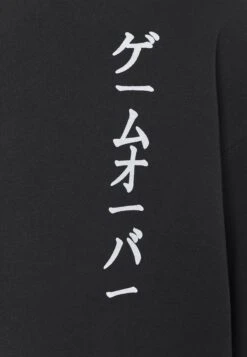 ゲームオーバー